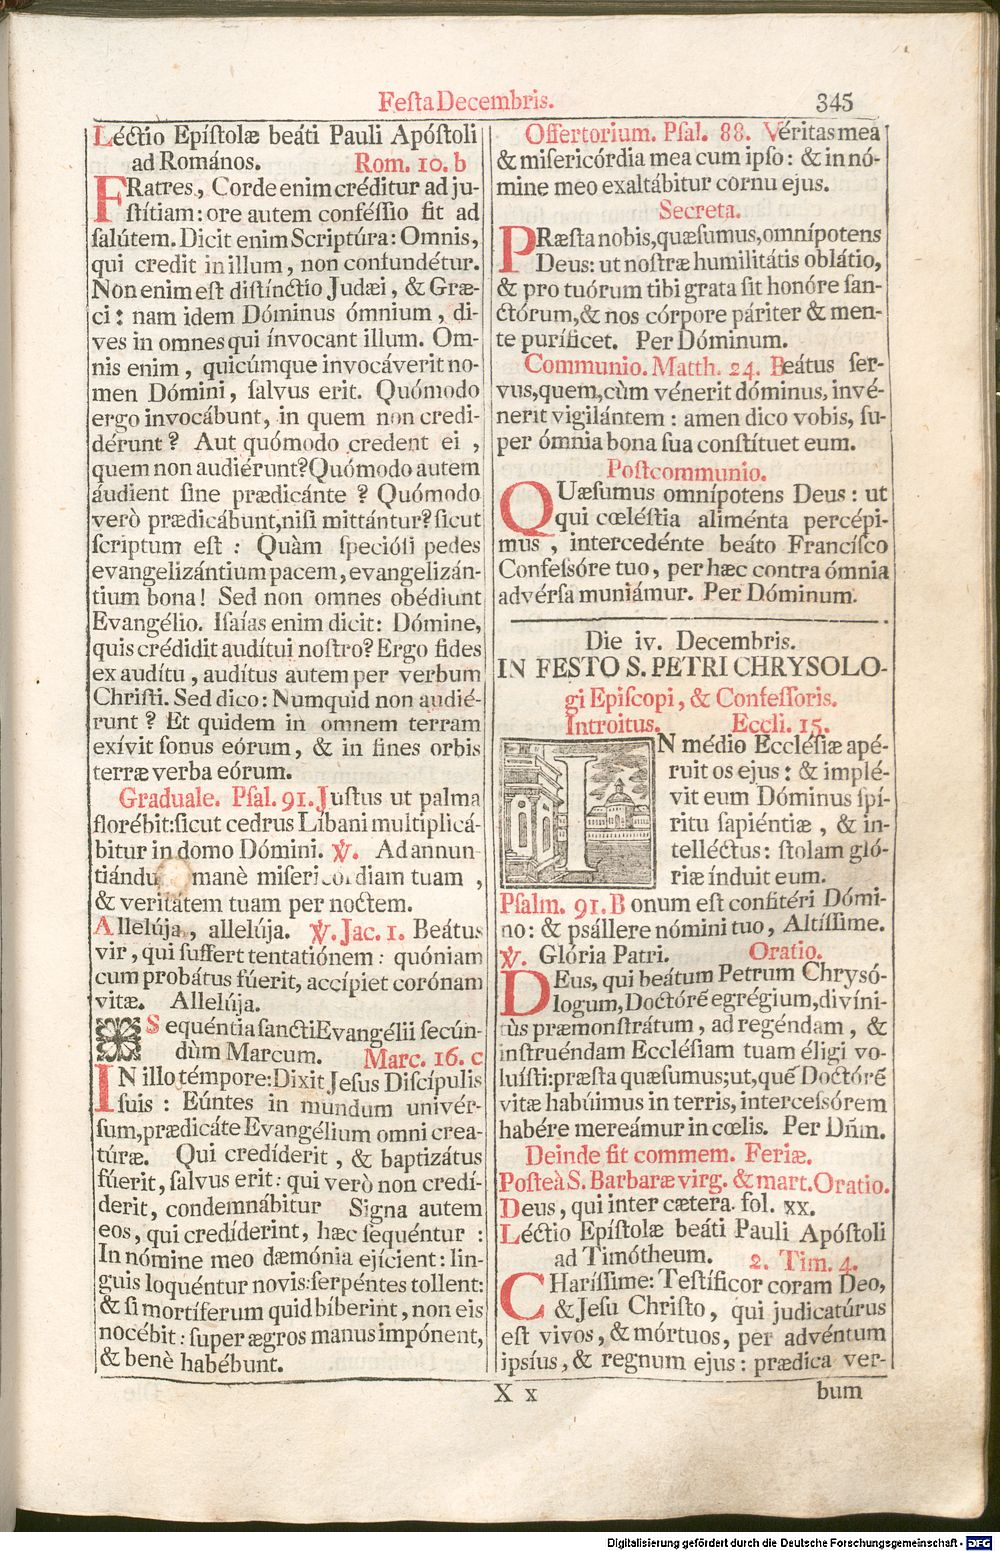 Feſta Decembris. 345
Léctio Epíſtolæ beáti Pauli Apóſtoli
ad Romános. Rom. 10. b
FRatres, Corde enim créditur ad ju-
ſtítiam: ore autem conféſſio fit ad
ſalútem. Dicit enim Scriptúra: Omnis,
qui credit in illum, non confundétur.
Non enim eſt diſtínctio Judæi, & Græ-
ci: nam idem Dóminus ómnium, di-
ves in omnes qui ínvocant illum. Om-
nis enim, quicúmque invocáverit no-
men Dómini, ſalvus erit. Quómodo
ergo invocábunt, in quem non credi-
dérunt? Aut quómodo credent ei,
quem non audiérunt? Quómodo autem
áudient ſine prædicánte? Quómodo
verò prædicábunt, niſi mittántur? ſicut
ſcriptum eſt: Quàm ſpecióſi pedes
evangelizántium pacem, evangelizán-
tium bona! Sed non omnes obédiunt
Evangélio. Iſaías enim dicit: Dómine,
quis crédidit audítui noſtro? Ergo fides
ex audítu, audítus autem per verbum
Chriſti. Sed dico: Numquid non audié-
runt? Et quidem in omnem terram
exívit ſonus eórum, & in fines orbis
terræ verba eórum.
Graduale. Pſal. 91. Juſtus ut palma
florébit: ſicut cedrus Líbani multiplicá-
bitur in domo Dómini. ℣. Ad annun
tiándu manè miſericordiam tuam,
& veritátem tuam per noctem.
Allelúja, allelúja. ℣. Jac. 1. Beátus
vir, qui ſuffert tentatiónem: quóniam
cum probátus fúerit, accípiet corónam
vitæ. Allelúja.
Sequéntia ſancti Evangélii ſecún-
dùm Marcum. Marc. 16. c
IN illo témpore: Dixit Jeſus Diſcípulis
ſuis: Eúntes in mundum univér-
ſum, prædicáte Evangélium omni crea-
túræ. Qui credíderit, & baptizátus
fúerit, ſalvus erit: qui verò non credí-
derit, condemnábitur Signa autem
eos, qui credíderint, hæc ſequéntur:
In nómine meo dæmónia ejícient: lin-
guis loquéntur novis: ſerpéntes tollent:
& ſi mortíferum quid bíberint, non eis
nocébit: ſuper ægros manus impónent,
& benè habébunt.
Offertorium. Pſal. 88. Véritas mea
& miſericórdia mea cum ipſo: & in nó-
mine meo exaltábitur cornu ejus.
Secreta.
PRæſta nobis, quæſumus, omnípotens
Deus: ut noſtræ humilitátis oblátio,
& pro tuórum tibi grata ſit honóre ſan-
ctórum, & nos córpore páriter & men-
te puríficet. Per Dóminum.
Communio. Matth. 24. Beátus ſer-
vus, quem, cùm vénerit dóminus, invé-
nerit vigilántem: amen dico vobis, ſu-
per ómnia bona ſua conſtítuet eum.
Poſtcommunio.
QUæſumus omnípotens Deus: ut
qui cœléſtia aliménta percépi-
mus, intercedénte beáto Francíſco
Confeſſóre tuo, per hæc contra ómnia
advérſa muniámur. Per Dóminum.
Die iv. Decembris.
IN FESTO S. PETRI CHRYSOLO-
gi Epiſcopi, & Confeſſoris.
Introitus. Eccli. 15.
IN médio Eccléſiæ apé-
ruit os ejus: & implé-
vit eum Dóminus ſpí-
ritu ſapiéntiæ, & in-
telléctus: ſtolam gló-
riæ índuit eum.
Pſalm. 91. Bonum eſt confitéri Dómi-
no: & pſállere nómini tuo, Altíſſime.
℣. Glória Patri. Oratio.
DEus, qui beátum Petrum Chryſó-
logum, Doctórẽ egrégium, divíni-
tùs præmonſtrátum, ad regéndam, &
inſtruéndam Eccléſiam tuam éligi vo-
luíſti: præſta quæſumus; ut, quẽ Doctórẽ
vitæ habúimus in terris, interceſſórem
habére mereámur in cœlis. Per Dñm.
Deinde fit commem. Feriæ.
Poſteà S. Barbaræ virg. & mart. Oratio.
Deus, qui inter cætera. fol. xx.
Léctio Epíſtolæ beáti Pauli Apóſtoli
ad Timótheum. 2. Tim. 4.
CHaríſſime: Teſtíficor coram Deo,
& Jeſu Chriſto, qui judicatúrus
eſt vivos, & mórtuos, per advéntum
ipsíus, & regnum ejus: prædica ver-
X x bum
Digitalisierung gefördert durch die Deutsche Forschungsgemeinschaft - DFG